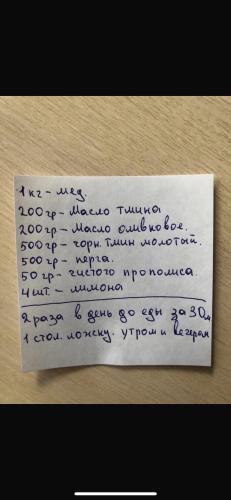 1 кг - мед.
200 гр - Масло тмина
200 гр - Масло оливковое.
500 гр - чорн. тмин молотый.
500 гр - перга.
50 гр - чистого прополиса.
4 шт. - лимона
2 раза в день до еды за 30м
1 стол. ложку. утром и вечером